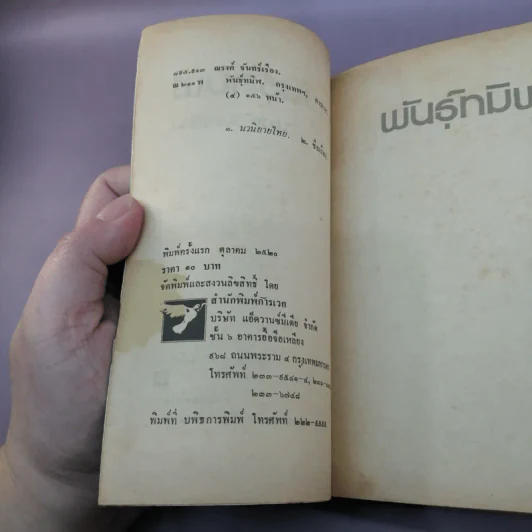 ๘๙๕.๙๑๓ ณรงค์ จันทร์เรือง.
พันธุ์ทมิฬ. กรุงเทพฯ,
(๔) ๑๕๖ หน้า.
๑. นวนิยายไทย. ๒.
พิมพ์ครั้งแรก ตุลาคม ๒๕๒๐
ราคา ๑๐ บาท
จัดพิมพ์และสงวนลิขสิทธิ์ โดย
สำนักพิมพ์การเวก
บริษัท แอ็ดวานซ์มีเดีย จำกัด
ชั้น ๖ อาคารอื้อจือเหลียง
๙๖๘ ถนนพระราม ๔
โทรศัพท์ ๒๓๓-๙๕๔๑-๔,
๒๓๓-๖๗๔๘
พิมพ์ที่ บพิธการพิมพ์ โทรศัพท์
พันธุ์ทมิฬ